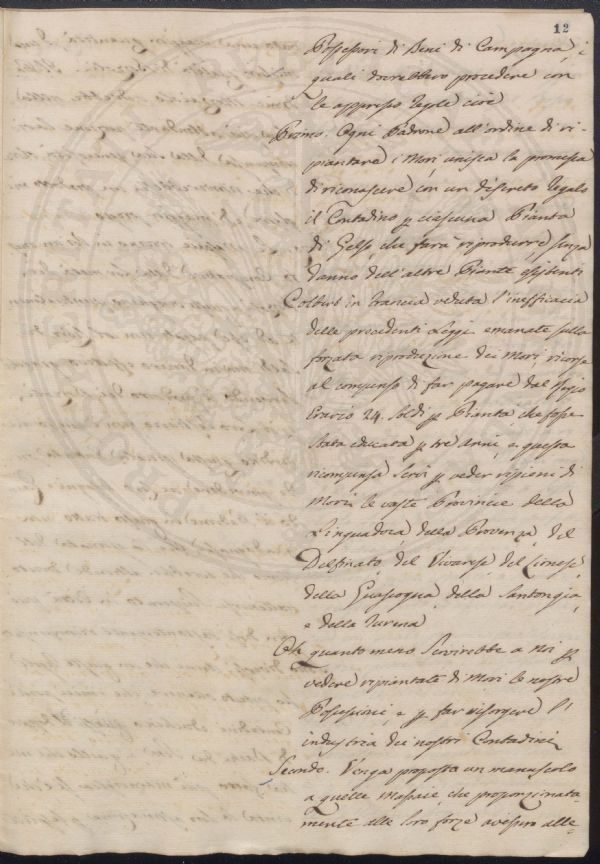 12
Possessori di Beni di Campagna, i
quali dovrebbero procedere con
le appresso regole cioè
Primo. Ogni Padrone all'ordine di ri-
piantare i Mori unisca la promessa
di riconoscere con un discreto regalo
il Contadino p ciascuna Pianta
di Gelso, che farà riprodurre senza
danno dell'altre Piante esistenti
Colbert in Francia veduta l'inefficacia
delle precedenti Leggi emanate sulla
forzata riproduzione dei Mori ricorse
al compenso di far pagare dal Regio
Erario 24. Soldi p Pianta, che fosse
stata educata p tre Anni, e questa
ricompensa servì p veder ripieni di
Mori le vaste Provincie della
Linguadoca della Provenza, del
Delfinato, del Vivarese del Lionese,
della Guascogna, della Santongia,
e della Turena
Oh quanto meno servirebbe a noi p
vedere ripiantate di Mori le nostre
Possessioni, e p far risorgere l'
industria dei nostri Contadini
Secondo. Venga proposto un
a quelle Massaie, che proporzionata-
mente alle loro forze avessero alle-